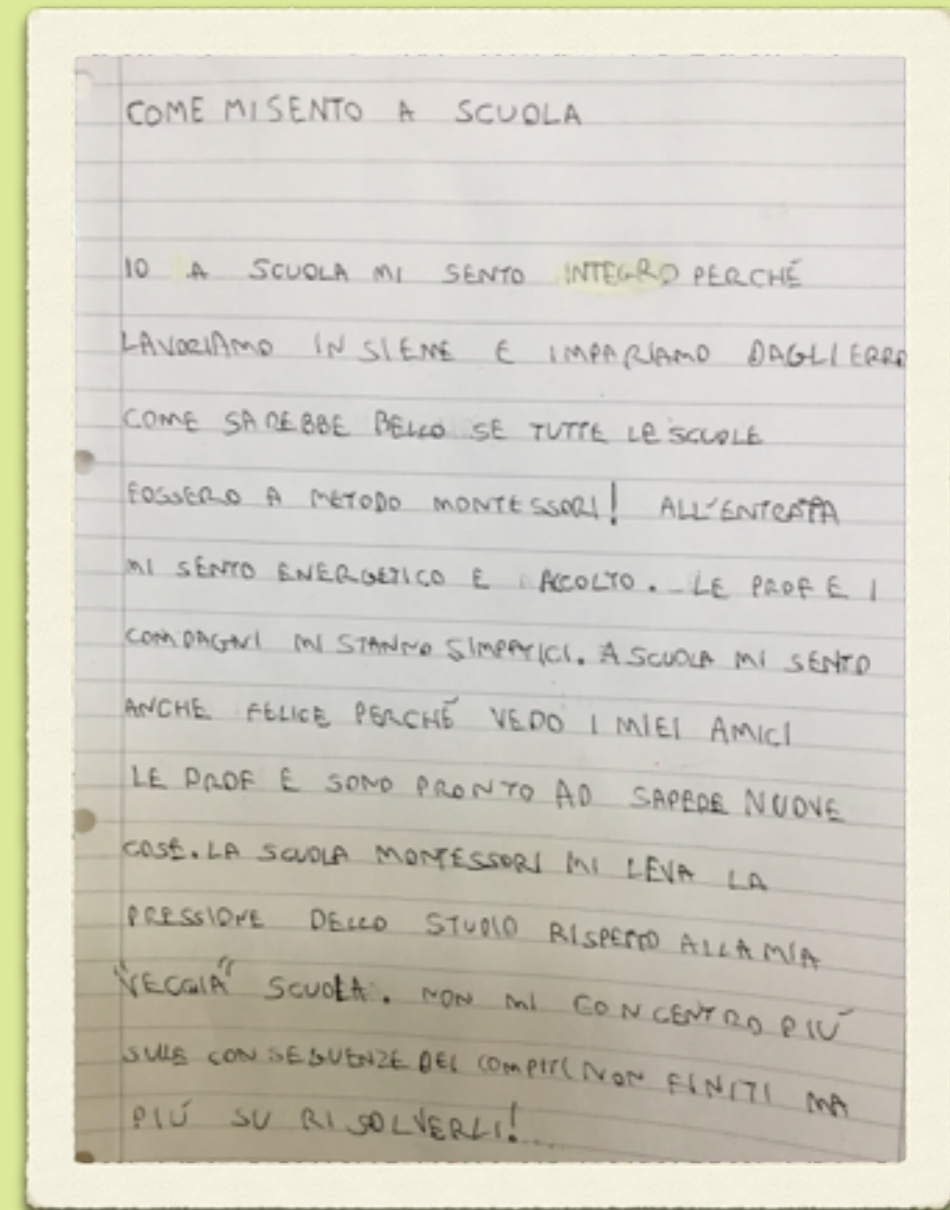 COME MI SENTO A SCUOLA
IO A SCUOLA MI SENTO INTEGRO PERCHÉ
LAVORIAMO INSIEME E IMPARIAMO DAGLI ERRO
COME SAREBBE BELLO SE TUTTE LE SCUOLE
FOSSERO A METODO MONTESSORI! ALL'ENTRATA
MI SENTO ENERGETICO E ACCOLTO. LE PROF E I
COMPAGNI MI STANNO SIMPATICI. A SCUOLA MI SENTO
ANCHE FELICE PERCHÉ VEDO I MIEI AMICI
LE PROF E SONO PRONTO AD SAPERE NUOVE
COSE. LA SCUOLA MONTESSORI MI LEVA LA
PRESSIONE DELLO STUDIO RISPETTO ALLA MIA
"VECCIA" SCUOLA. NON MI CONCENTRO PIÚ
SULLE CONSEGUENZE DEI COMPITI NON FINITI MA
PIÚ SU RISOLVERLI!